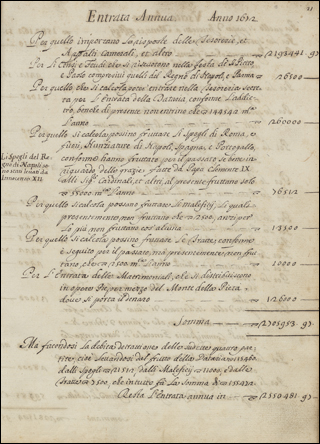 21
Entrata Annua. Anno 1692
Per quello importano le risposte delle Tesorerie, et
Appalti Camerali, et altro — 2193441. 93
Per li Censi, e Feudi che si riscuotono nella festa di S. Pietro
e Paolo compresivi quelli del Regno di Napoli, e Parma — 26500
Per quello che si calcola possi entrare nella Tesoreria secreta
per l'Entrata della Dataria, conforme l'addietro,
benche di presente non entri no che 144542 m.ta
l'anno — 260000
Per quello si calcola possino fruttare li Spogli di Roma, e
fuori, Nuntiature di Napoli, Spagna, e Portogallo,
conforme hanno fruttato per il passato se bene in
riguardo delle grazie fatte da Papa Clemente IX
alli SS.ri Cardinali, et altri, al presente fruttano solo
55000 m.ta l'anno — 76512
Li Spogli del Re
gno di Napoli so
no stati levati da
Innocenzo XII
Per quello si calcola possino fruttare li Malefitij, li quali
presentemente non fruttano che 2500, anzi per
lo più non fruttano cos'alcuna — 13500
Per quello si calcola possino fruttare le Grazie, conforme
è seguito per il passato, ma presentemente non frut
tano, che 1500 m.ta l'anno — 10000
Per l'Entrata delle Matrimoniali, che si distribuiscono
in opere Pie, per mezzo del Monte della Pietà
dove si porta il denaro — 126000
Somma — 2705953. 93
Ma facendosi la debita detrazzione delle sudette quattro par
tite, cioè levandosi dal frutto della Dataria 115460
dalli Spogli 21512, dalli Malefitij 11000, e dalle
Grazie 7500, che in tutto fà la somma di 155472.
Resta l'Entrata annua in — 2550481. 93